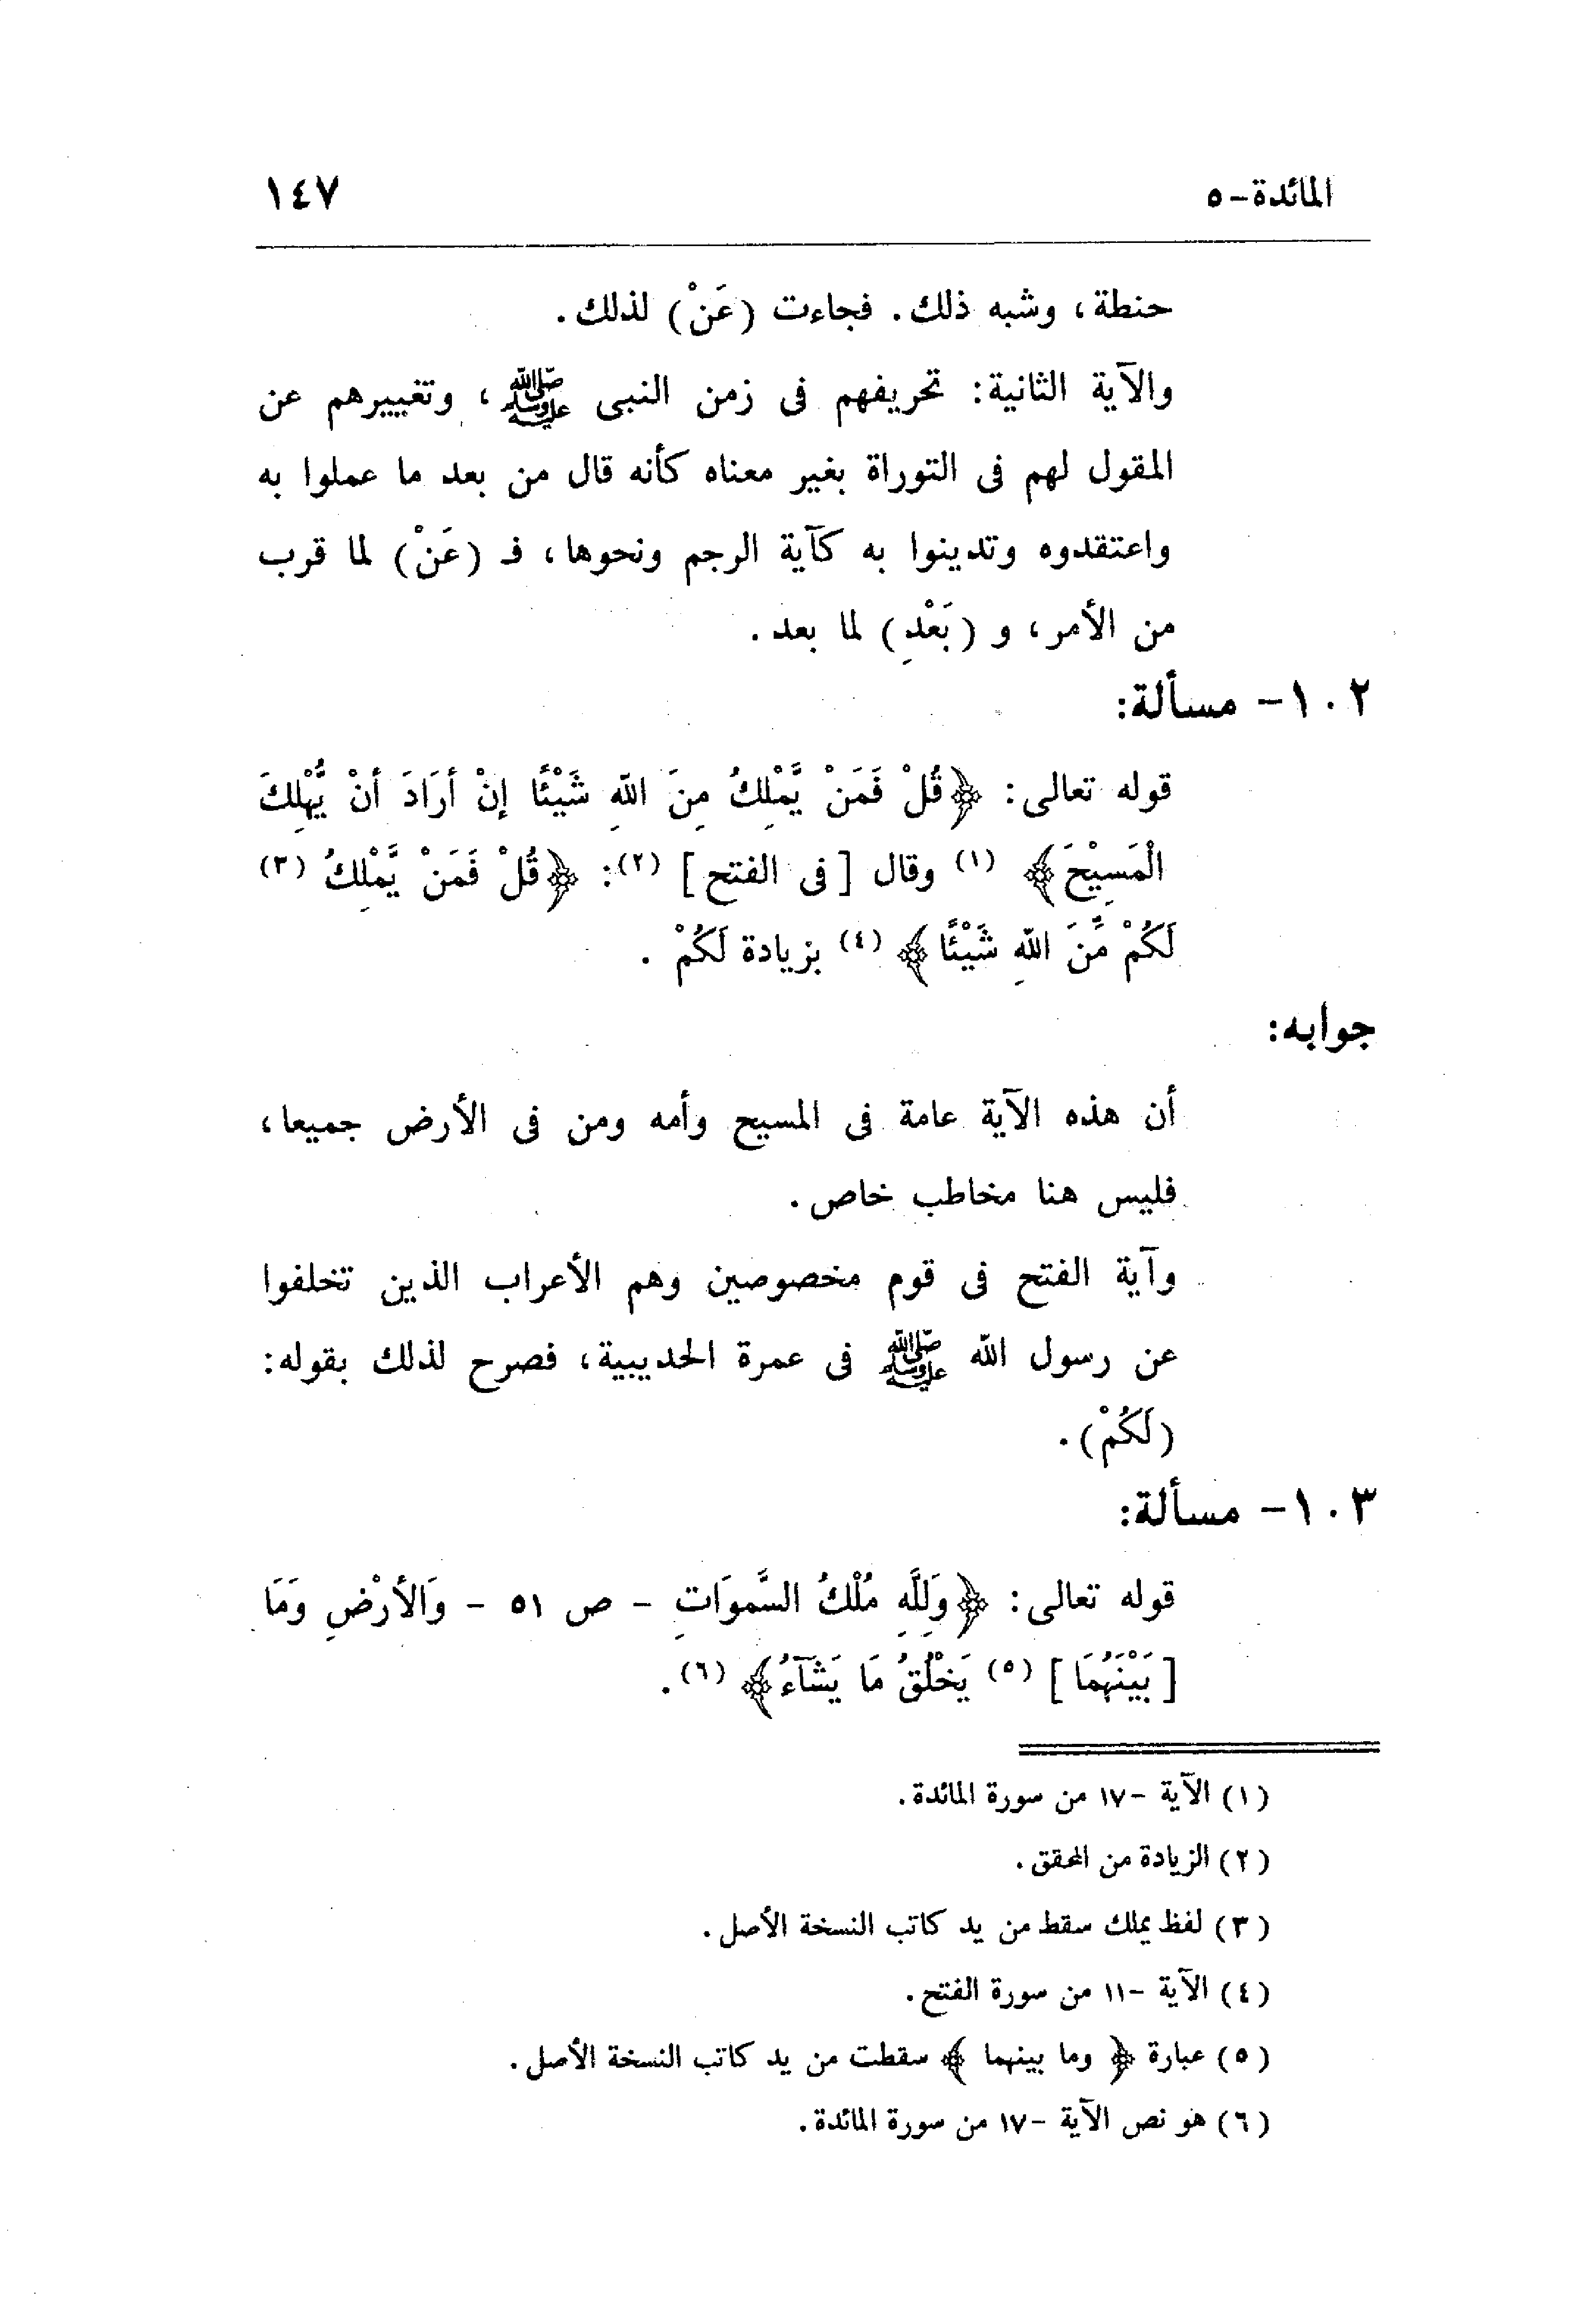 المائدة-٥ ١٤٧
حنطة، وشبه ذلك. فجاءت (عَنْ) لذلك.
والآية الثانية: تحريفهم فى زمن النبى ﷺ، وتغييرهم عن
المقول لهم فى التوراة بغير معناه كأنه قال من بعد ما عملوا به
واعتقدوه وتدينوا به كآية الرجم ونحوها، فـ (عَنْ) لما قرب
من الأمر، و (بَعْدِ) لما بعد.
١٠٢- مسألة:
قوله تعالى: ﴿قُلْ فَمَنْ يَّمْلِكُ مِنَ اللّهِ شَيْئًا إنْ أرَادَ أنْ يُّهْلِكَ
الْمَسِيْحَ﴾ (١) وقال [فى الفتح] (٢): ﴿قُلْ فَمَنْ يَّمْلِكُ (٣)
لَكُمْ مِّنَ اللّهِ شَيْئًا﴾ (٤) بزيادة لَكُمْ.
جوابه:
أن هذه الآية عامة فى المسيح وأمه ومن فى الأرض جميعا،
فليس هنا مخاطب خاص.
وآية الفتح فى قوم مخصوصين وهم الأعراب الذين تخلفوا
عن رسول اللّه ﷺ فى عمرة الحديبية، فصرح لذلك بقوله:
(لَكُمْ).
١٠٣- مسألة:
قوله تعالى: ﴿وَلِلَّهِ مُلْكُ السَّموَاتِ - ص ٥١ - وَالأرْضِ وَمَا
[بَيْنَهُمَا] (٥) يَخْلُقُ مَا يَشَآءُ﴾ (٦).
(١) الآية -١٧ من سورة المائدة.
(٢) الزيادة من المحقق.
(٣) لفظ يملك سقط من يد كاتب النسخة الأصل.
(٤) الآية -١١ من سورة الفتح.
(٥) عبارة ﴿ وما بينهما ﴾ سقطت من يد كاتب النسخة الأصل.
(٦) هو نص الآية -١٧ من سورة المائدة.